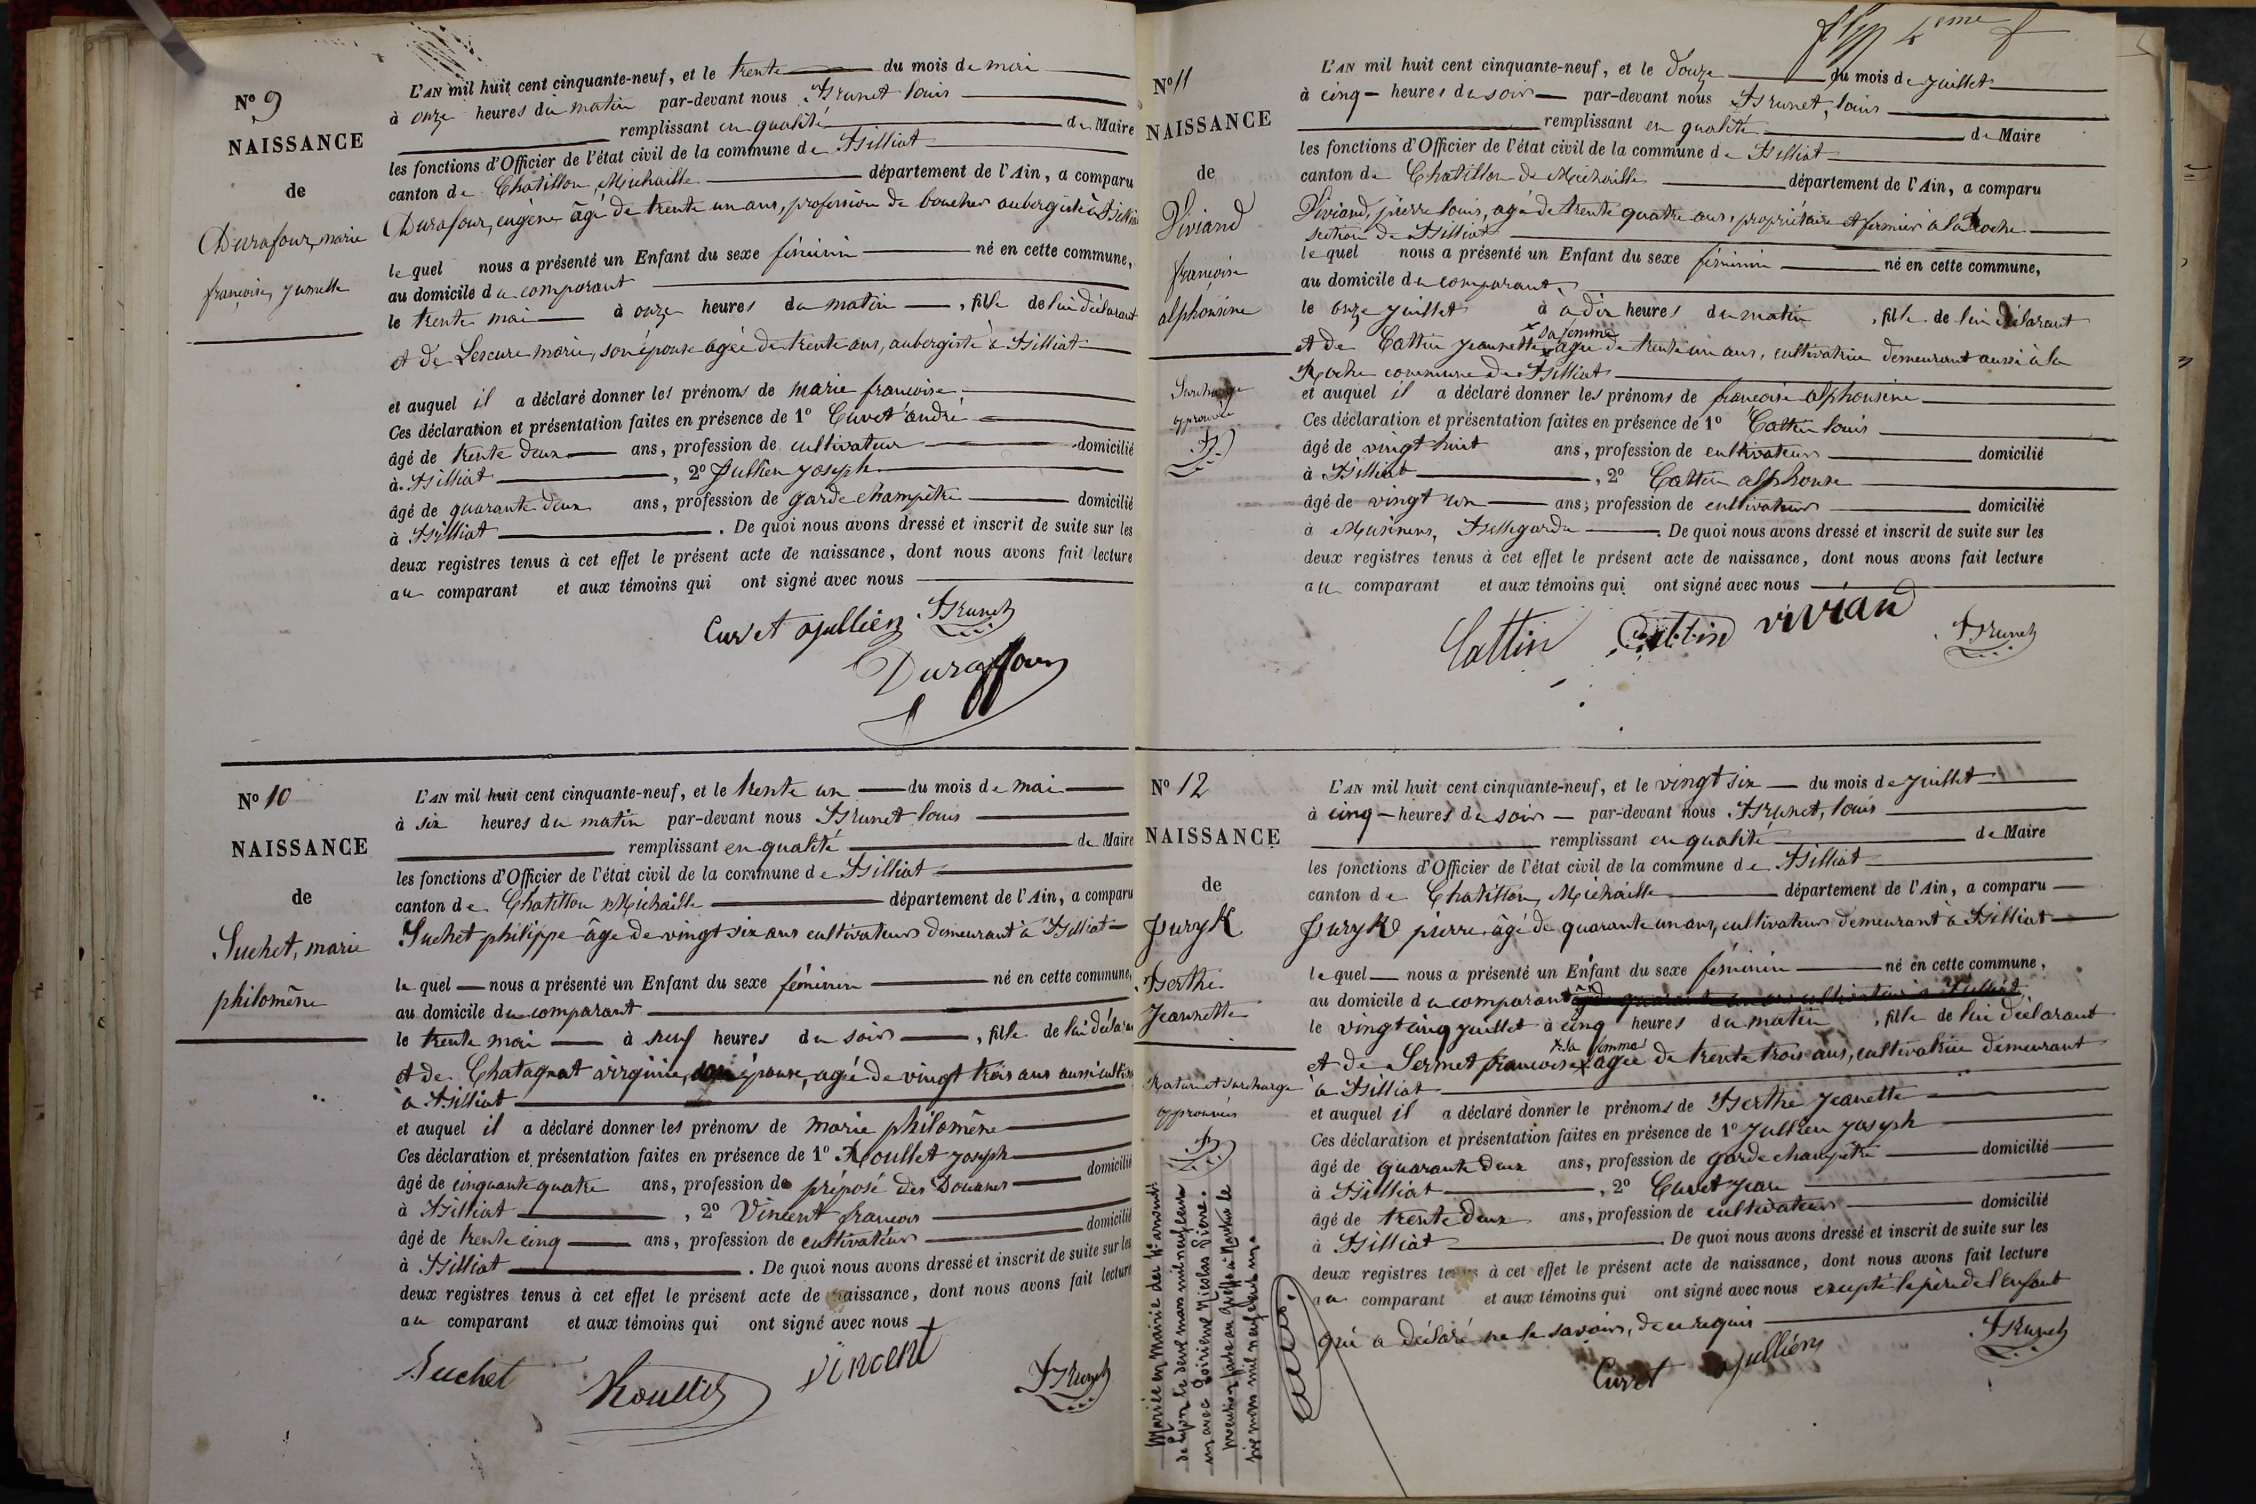 N° 9
NAISSANCE
de
Durafour, marie
françoise, jumelle
L'AN mil huit cent cinquante-neuf, et le trente du mois de mai
à onze heures du matin par-devant nous Brunet louis
remplissant en qualité de Maire
les fonctions d'Officier de l'état civil de la commune de Billiat
canton de Chatillon Michaille département de l'Ain, a comparu
Durafour, eugène âgé de trente un ans, profession de boucher aubergiste à Billiat
le quel nous a présenté un Enfant du sexe féminin né en cette commune,
au domicile du comparant
le trente mai à onze heures du matin, fille de lui déclarant
et de Lescure marie, son épouse agée de trente ans, aubergiste à Billiat
et auquel il a déclaré donner les prénoms de marie françoise
Ces déclaration et présentation faites en présence de 1° Curvet andré
âgé de trente deux ans, profession de cultivateur domicilié
à Billiat, 2° Jullien joseph
âgé de quarante deux ans, profession de garde champêtre domicilié
à Billiat. De quoi nous avons dressé et inscrit de suite sur les
deux registres tenus à cet effet le présent acte de naissance, dont nous avons fait lecture
au comparant et aux témoins qui ont signé avec nous
Curvet Jullien Brunet
Duraffour
N° 10
NAISSANCE
de
Suchet, marie
philomène
L'AN mil huit cent cinquante-neuf, et le trente un du mois de mai
à six heures du matin par-devant nous Brunet louis
remplissant en qualité de Maire
les fonctions d'Officier de l'état civil de la commune de Billiat
canton de Chatillon Michaille département de l'Ain, a comparu
Suchet philippe âgé de vingt six ans cultivateur demeurant à Billiat
le quel nous a présenté un Enfant du sexe féminin né en cette commune,
au domicile du comparant
le trente mai à neuf heures du soir, fille de lui déclarant
et de Chatagnat virginie, son épouse, agé de vingt trois ans aussi cultiv
à Billiat
et auquel il a déclaré donner les prénoms de marie philomène
Ces déclaration et présentation faites en présence de 1° Roullet joseph
âgé de cinquante quatre ans, profession de préposé des Douanes domicilié
à Billiat, 2° Vincent francois
âgé de trente cinq ans, profession de cultivateur domicilié
à Billiat. De quoi nous avons dressé et inscrit de suite sur les
deux registres tenus à cet effet le présent acte de naissance, dont nous avons fait lecture
au comparant et aux témoins qui ont signé avec nous
Suchet Roullet vincent Brunet
4eme f
N° 11
NAISSANCE
de
Viviand
françoise
alphonsine
Surcharge
approuvée
B
L'AN mil huit cent cinquante-neuf, et le douze du mois de juillet
à cinq heures du soir par-devant nous Brunet, louis
remplissant en qualité de Maire
les fonctions d'Officier de l'état civil de la commune de Billiat
canton de Chatillon de Michaille département de l'Ain, a comparu
Viviand, pierre louis, agé de trente quatre ans, propriétaire et fermier à la Roche
section de Billiat
le quel nous a présenté un Enfant du sexe féminin né en cette commune,
au domicile du comparant
le onze juillet à à dix heures du matin, fille de lui déclarant
x sa femme
et de Cattin jeannette x agée de trente un ans, cultivatrice demeurant aussi à la
Roche commune de Billiat
et auquel il a déclaré donner les prénoms de francoise alphonsine
Ces déclaration et présentation faites en présence de 1° Cattin louis
âgé de vingt huit ans, profession de cultivateur domicilié
à Billiat, 2° Cattin alphonse
âgé de vingt un ans, profession de cultivateur domicilié
à Musinens, Bellegarde. De quoi nous avons dressé et inscrit de suite sur les
deux registres tenus à cet effet le présent acte de naissance, dont nous avons fait lecture
au comparant et aux témoins qui ont signé avec nous
Cattin Cattin vivian Brunet
N° 12
NAISSANCE
de
Puryk
Berthe
Jeannette
Rature et surcharge
approuvées
B
Mariée en mairie du 4e arrond.
de Lyon le deux mars mil neuf cent
un avec Poirieux Nicolas Pierre.
mention faite au Greffe à Nantua le
six mars mil neuf cent un.
L'AN mil huit cent cinquante-neuf, et le vingt six du mois de juillet
à cinq heures du soir par-devant nous Brunet, louis
remplissant en qualité de Maire
les fonctions d'Officier de l'état civil de la commune de Billiat
canton de Chatillon, Michaille département de l'Ain, a comparu
Puryk pierre âgé de quarante un ans, cultivateur demeurant à Billiat
le quel nous a présenté un Enfant du sexe féminin né en cette commune,
au domicile du comparant
le vingt cinq juillet à cinq heures du matin, fille de lui déclarant
x sa femme
et de Sermet francoise x agée de trente trois ans, cultivatrice demeurant
à Billiat
et auquel il a déclaré donner le prénoms de Berthe jeanette
Ces déclaration et présentation faites en présence de 1° Jullien joseph
âgé de quarante deux ans, profession de garde champêtre domicilié
à Billiat, 2° Curvet jean
âgé de trente deux ans, profession de cultivateur domicilié
à Billiat. De quoi nous avons dressé et inscrit de suite sur les
deux registres tenus à cet effet le présent acte de naissance, dont nous avons fait lecture
au comparant et aux témoins qui ont signé avec nous excepté le père de l'enfant
qui a déclaré ne le savoir, de ce requis
Curvet Jullien Brunet